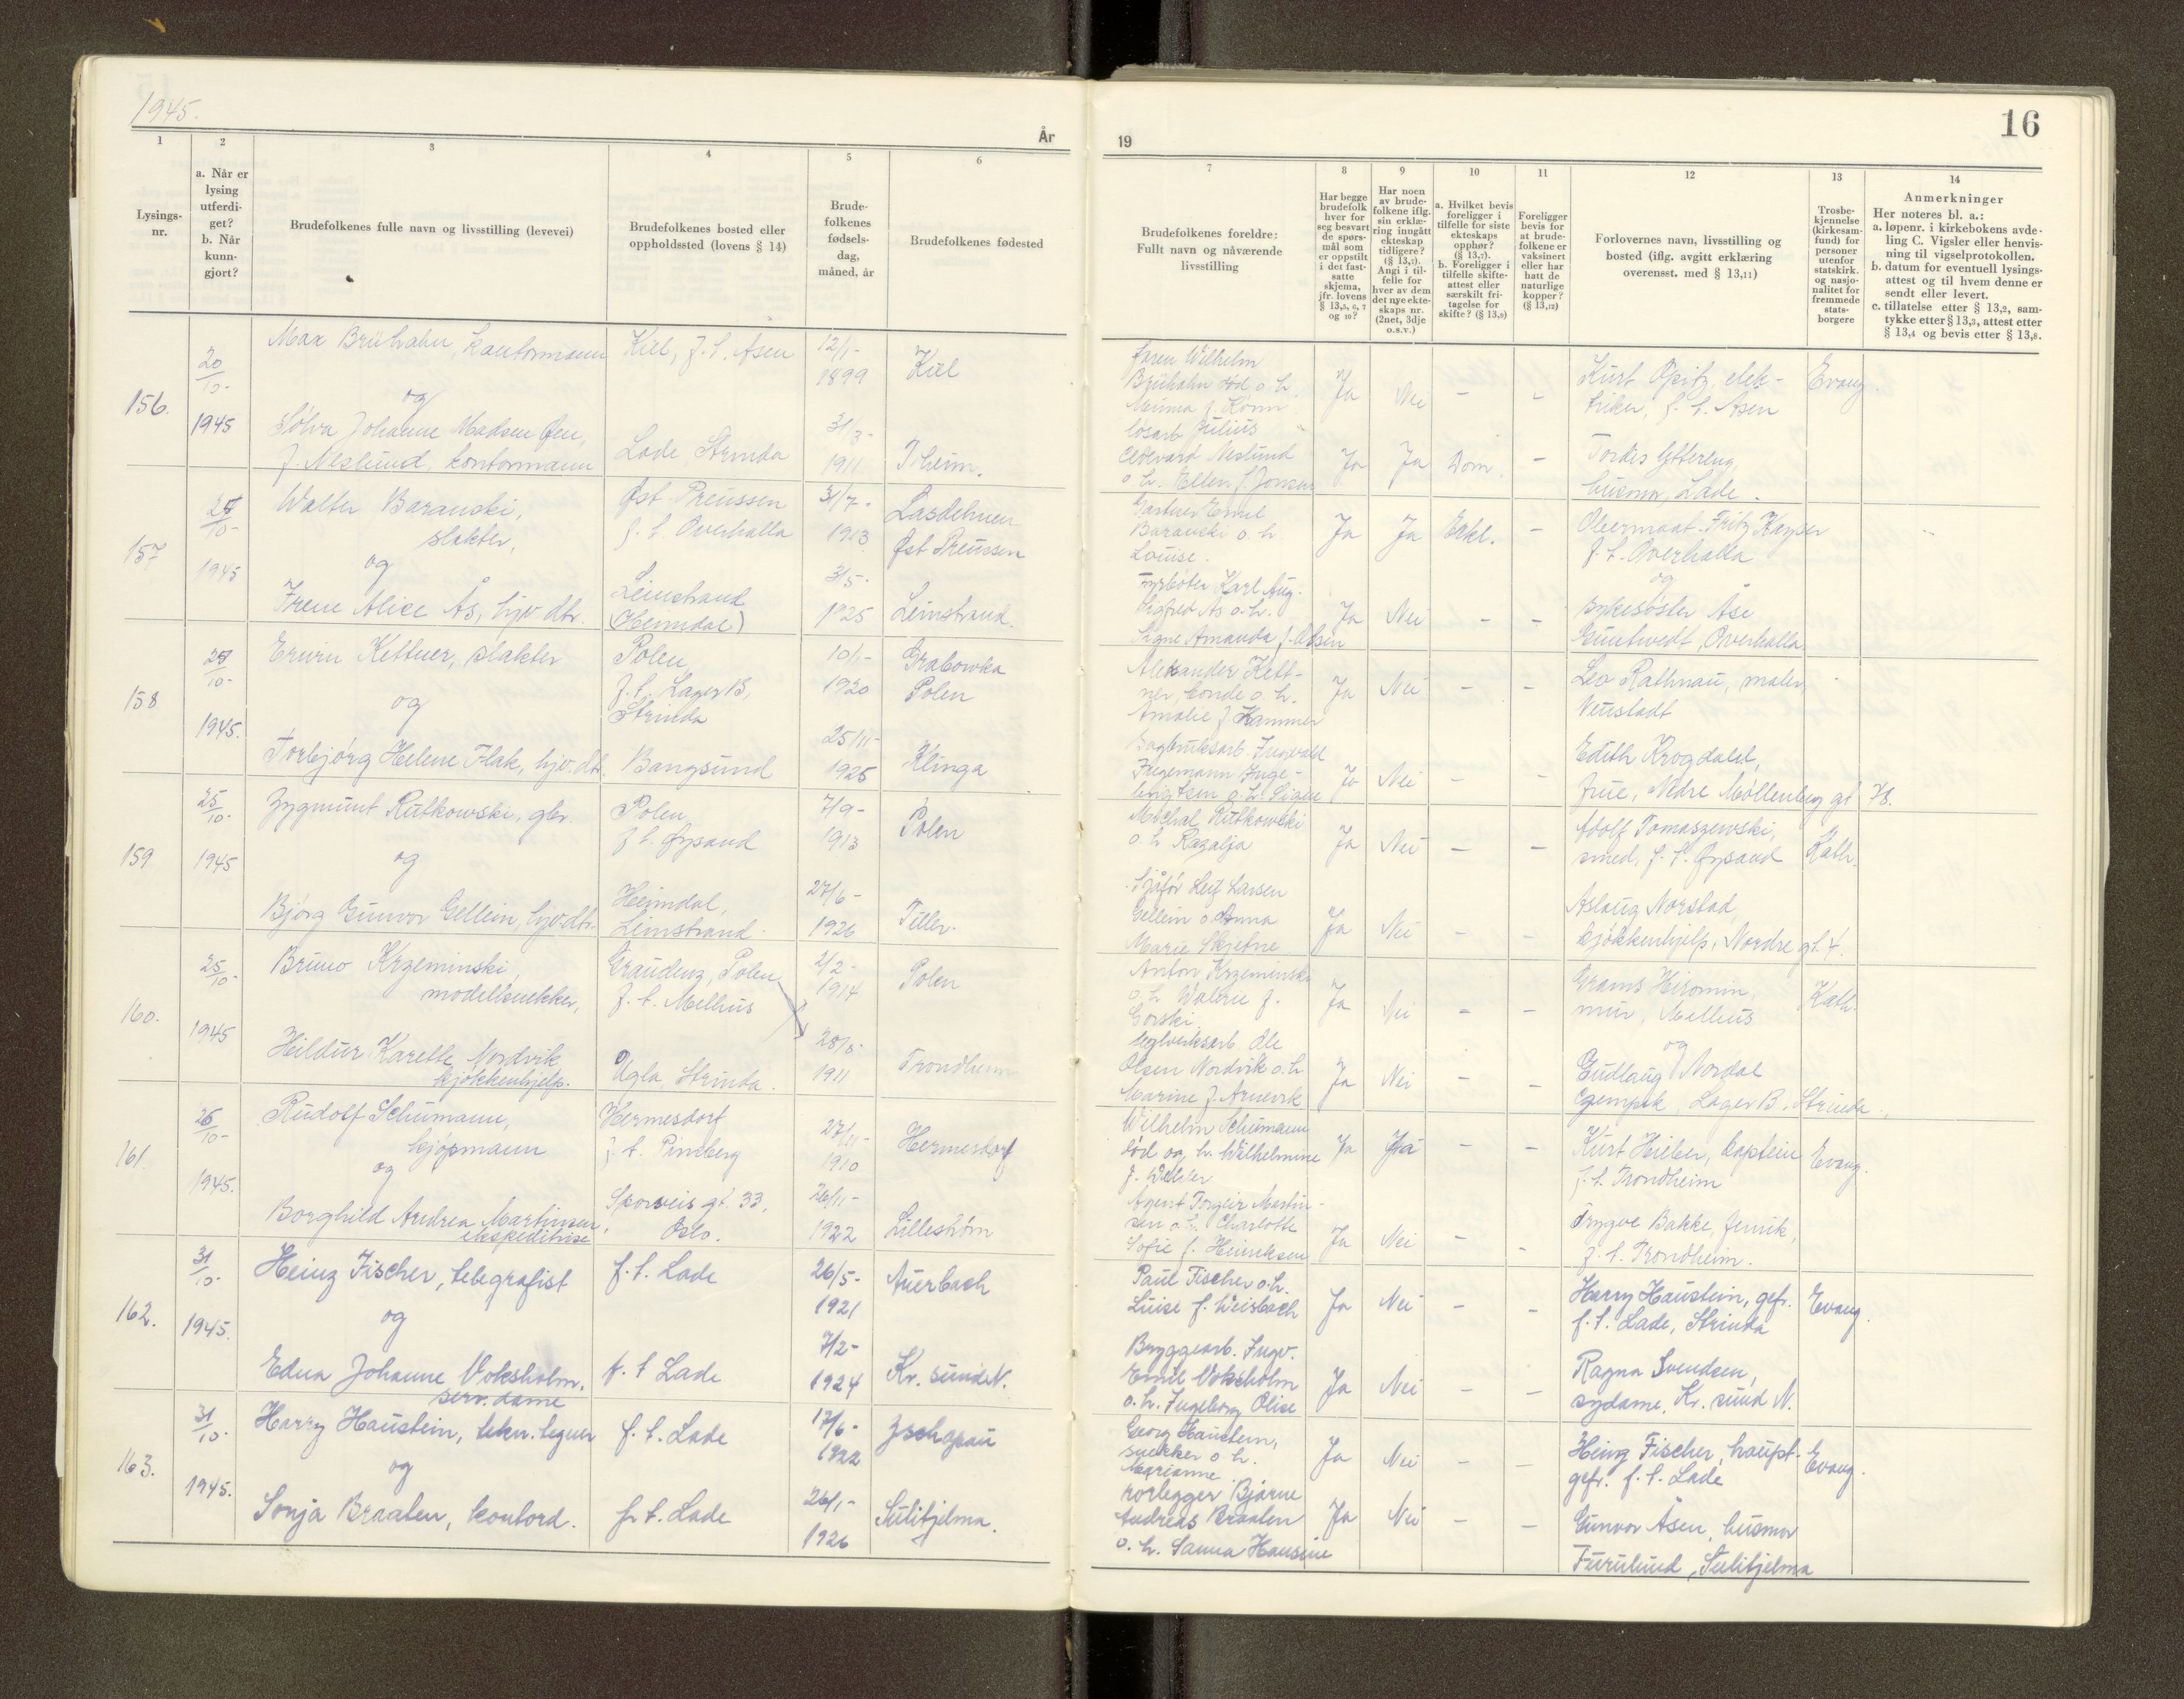 1945.
År
1
2
3
4
5
6
Lysings-
nr.
a. Når er
lysing
utferdi-
get?
b. Når
kunn-
gjort?
Brudefolkenes fulle navn og livsstilling (levevei)
Brudefolkenes bosted eller
oppholdssted (lovens § 14)
Brude-
folkenes
fødsels-
dag,
måned, år
Brudefolkenes fødested
156.
20/10-
1945
Max Brühahn, kontormann
og
Sólva Johanne Madsen Øen,
f. Neslund, kontormann
Kiel, f. t. Åsen
Lade, Strinda
12/1-
1899
31/3-
1911
Kiel
T.heim.
157
25/10-
1945
Walter Baranski,
slakter,
og
Irene Alice Ås, hjv. dtr.
Øst Preussen
f. t. Overhalla
Leinstrand
(Heimdal)
31/7-
1913
3/5-
1925
Lasdehnen
Øst Preussen
Leinstrand.
158
25/10-
1945.
Erwin Kettner, slakter
og
Torbjørg Helene Flak, hjv. dtr.
Polen,
f. t. Lager B,
Strinda
Bangsund
10/1-
1920
25/11-
1925
Grabowka
Polen
Klinga
159
25/10-
1945
Zygmunt Rutkowski, gbr.
og
Bjørg Gunvor Gellein, hjv. dtr.
Polen
f. t. Øysand
Heimdal,
Leinstrand.
7/9-
1913
27/6-
1926
Polen
Tiller.
160.
25/10-
1945
Bruno Krzeminski,
modellsnekker,
Hildur Karette Nordvik
kjøkkenhjelp.
Graudenz, Polen
f. t. Melhus
Ugla, Strinda.
2/2-
1914
28/5-
1911
Polen
Trondheim
161.
26/10-
1945.
Rudolf Schumann,
kjøpmann
og
Borghild Andrea Martinsen,
ekspeditrise
Hermesdorf
f. t. Pinsberg
Sporveis gt. 33,
Oslo.
27/11-
1910
26/11-
1922
Hermersdorf
Lillestrøm
162.
31/10-
1945.
Heinz Fischer, telegrafist
og
Edna Johanne Voksholm,
serv. dame
f. t. Lade
f. t Lade
26/5-
1921
7/2-
1924
Auerbach
Kr. sund N.
163.
31/10-
1945.
Harry Haustein, tekn. tegner
og
Sonja Braaten, kontord.
f. t. Lade
f. t. Lade
17/6-
1922
26/1-
1926
Zschopau
Sulitjelma.
16
19
7
8
9
10
11
12
13
14
Brudefolkenes foreldre:
Fullt navn og nåværende
livsstilling
Har begge
brudefolk
hver for
seg besvart
de spørs-
mål som
er oppstilt
i det fast-
satte
skjema,
jfr. lovens
§ 13,5, 6, 7
og 10?
Har noen
av brude-
folkene iflg.
sin erklæ-
ring inngått
ekteskap
tidligere?
(§ 13,7).
Angi i til-
felle for
hver av dem
det nye ekte-
skaps nr.
(2net, 3dje
o.s.v.)
a. Hvilket bevis
foreligger i
tilfelle for siste
ekteskaps
opphør?
(§ 13,7).
b. Foreligger i
tilfelle skifte-
attest eller
særskilt fri-
tagelse for
skifte? (§ 13,9)
Foreligger
bevis for
at brude-
folkene er
vaksinert
eller har
hatt de
naturlige
kopper?
(§ 13,12)
Forlovernes navn, livsstilling og
bosted (iflg. avgitt erklæring
overensst. med § 13,11)
Trosbe-
kjennelse
(kirkesam-
fund) for
personer
utenfor
statskirk.
og nasjo-
nalitet for
fremmede
stats-
borgere
Anmerkninger
Her noteres bl. a.:
a. løpenr. i kirkebokens avde-
ling C. Vigsler eller henvis-
ning til vigselprotokollen.
b. datum for eventuell lysings-
attest og til hvem denne er
sendt eller levert.
c. tillatelse etter § 13,2, sam-
tykke etter § 13,3, attest etter
§ 13,4 og bevis etter § 13,8.
Wilhelm
Brühahn død o. h.
Minna f. Korm
Ja
Nei
-
-
Kurt Opitz, elek-
triker, f. t. Åsen
Evang.
løsarb. Julius
Edevard Neslund
o. h. Ellen f. Jonsen
Ja
Ja
Dom.
-
Tordis Yttereng,
husmor, Lade.
Gartner Emil
Baranski o. h.
Louise.
Ja
Ja
Erkl.
-
Obermaat Fritz Kayser
f. t. Overhalla
og
Fyrbøter Karl Aug.
Sigfred Ås o. h.
Signe Amanda f. Olsen
Ja
Nei
-
-
sykesøster Åse
Guntvedt, Overhalla
Alexander Kett-
ner, bonde o. h.
Amalie f. Kammer
Ja
Nei
-
-
Leo Rathnau, maler,
Neustadt
Sagbruksarb. Ingvald
Ingemann Inge-
brigtsen o. h. Signe
Ja
Nei
-
-
Edith Krogdahl,
frue, Nedre Møllenberg gt 78.
Michal Rutkowski
o. h. Rozalja
Ja
Nei
-
-
Adolf Tomaszewski,
smed, f. t. Øysand
Kath.
Sjåfør Leif Larsen
Gellein o. Anna
Marie Skjetne
Ja
Nei
-
-
Aslaug Norstad,
kjøkkenhjelp, Nordre gt. 4.
Anton Krzeminski
o. h. Walerie f.
Gorski.
Ja
Nei
-
-
Grams Hiromin,
mur, Melhus
og
Kath.
teglverksarb. Ole
Olsen Nordvik o. h.
Marine f. Arnevik
Ja
Nei
-
-
Gudlaug Nordal
Lager B. Strinda.
Wilhelm Schumann
død og h. Wilhelmine
f. Welter
Ja
Ja
-
-
Kurt Hieber, kaptein
f. t. Trondheim
Evang.
Agent Torgeir Martin-
sen o. h. Charlotte
Sofie f. Henriksen
Ja
Nei
-
-
Trygve Bakke, fenrik,
f. t. Trondheim.
Paul Fischer o. h.
Luise f. Weisbach
Ja
Nei
-
-
Harry Haustein, gefr.
f. t. Lade, Strinda
Evang.
Bryggearb. Ingv.
Emil Voksholm
o. h. Ingeborg Olise
Ja
Nei
-
-
Ragna Svendsen,
sydame, Kr. sund N.
Georg Haustein,
snekker o. h.
Marianne.
Ja
Nei
-
-
Heinz Fischer, haupt-
gefr. f. t. Lade
Evang.
rørlegger Bjarne
Andreas Braaten
o. h. Sanna Hansine
Ja
Nei
-
-
Gunvor Åsen, husmor
Furulund, Sulitjelma